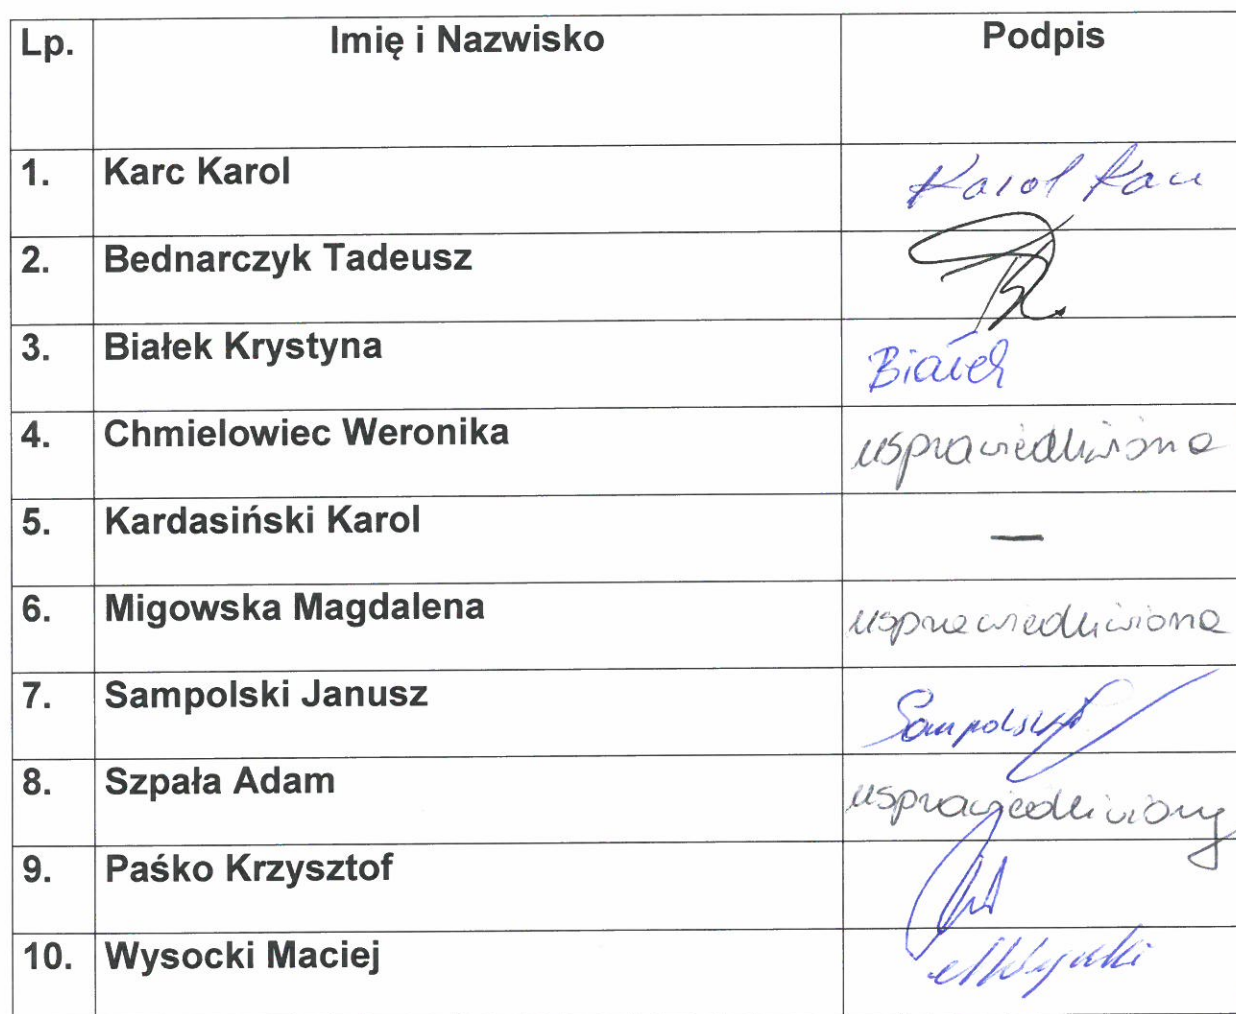 Lp. Imię i Nazwisko Podpis
1. Karc Karol Karol Karc
2. Bednarczyk Tadeusz
3. Białek Krystyna Białek
4. Chmielowiec Weronika usprawiedliwiona
5. Kardasiński Karol —
6. Migowska Magdalena usprawiedliwiona
7. Sampolski Janusz Sampolski
8. Szpała Adam usprawiedliwiony
9. Paśko Krzysztof
10. Wysocki Maciej MWysocki